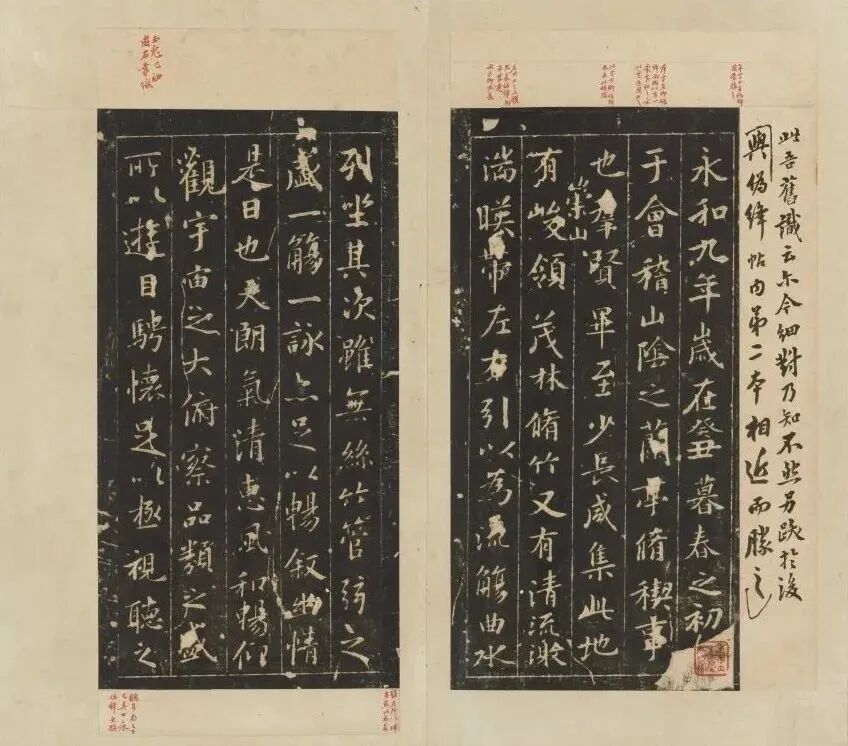 此吾舊識云尓今細對乃知不然另跋於後
與僞絳帖内第二本相近而勝之
永和九年歲在癸丑暮春之初
于會稽山陰之蘭亭脩禊事
也羣賢畢至少長咸集此地
有崇山峻領茂林脩竹又有清流激
湍暎帶左右引以為流觴曲水
列坐其次雖無絲竹管弦之
盛一觴一詠亦足以暢敘幽情
是日也天朗氣清惠風和暢仰
觀宇宙之大俯察品類之盛
所以遊目騁懷足以極視聽之